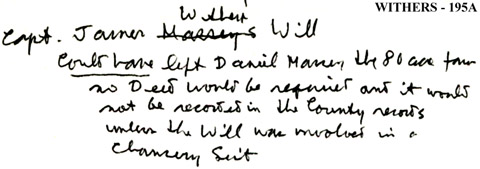 WITHERS - 195A
Withers
Capt. James Massey's Will
Could have left Daniel Massey the 80 acre farm
so Deed would be required and it would
not be recorded in the County records
unless the Will was involved in a
Chancery Suit